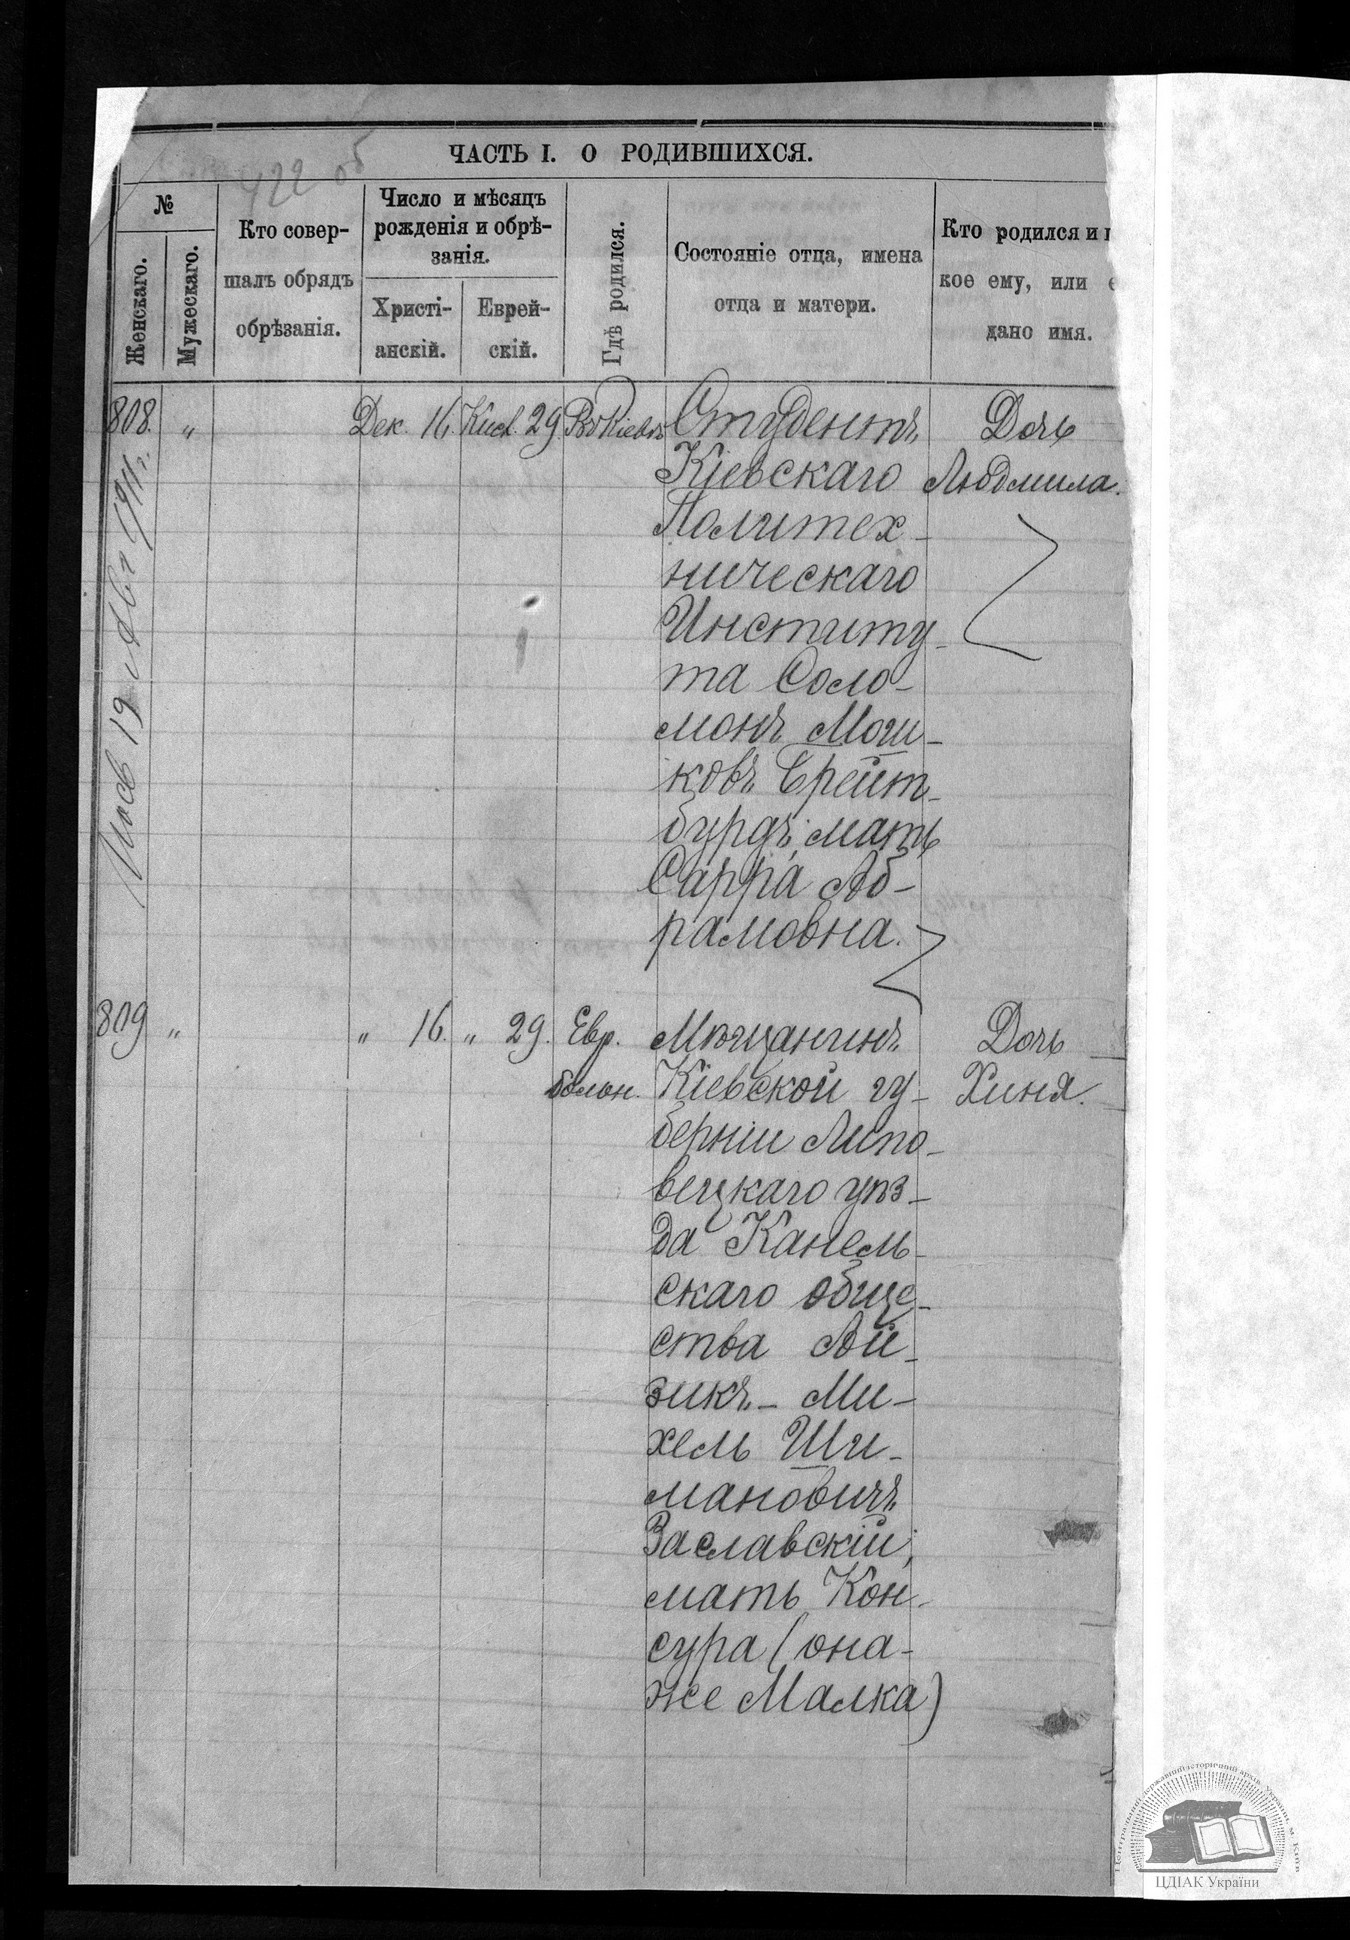 422 об
ЧАСТЬ I. О РОДИВШИХСЯ.
№
Женскаго.
Мужескаго.
Кто совер-
шалъ обрядъ
обрѣзанія.
Число и мѣсяцъ
рожденія и обрѣ-
занія.
Христі-
анскій.
Еврей-
скій.
Гдѣ родился.
Состояніе отца, имена
отца и матери.
Кто родился и
кое ему, или
дано имя.
808. „ Дек. 16. Кисл. 29 Въ Кіевѣ
Студентъ
Кіевскаго
Политех-
ническаго
Институ-
та Соло-
монъ Мош-
ковъ Брейт-
бурдъ, мать
Сарра Аб-
рамовна.
Дочь
Людмила.
809 „ „ 16. „ 29. Евр.
больн.
Мѣщанинъ
Кіевской гу-
берніи Липо-
вецкаго уѣз-
да Канель-
скаго обще-
ства Ай-
зикъ-Ми-
хель Ши-
мановичъ
Заславскій,
мать Кон-
сура (она-
же Малка)
Дочь
Хиня.
Центральний державний історичний архів України, м. Київ
ЦДІАК України